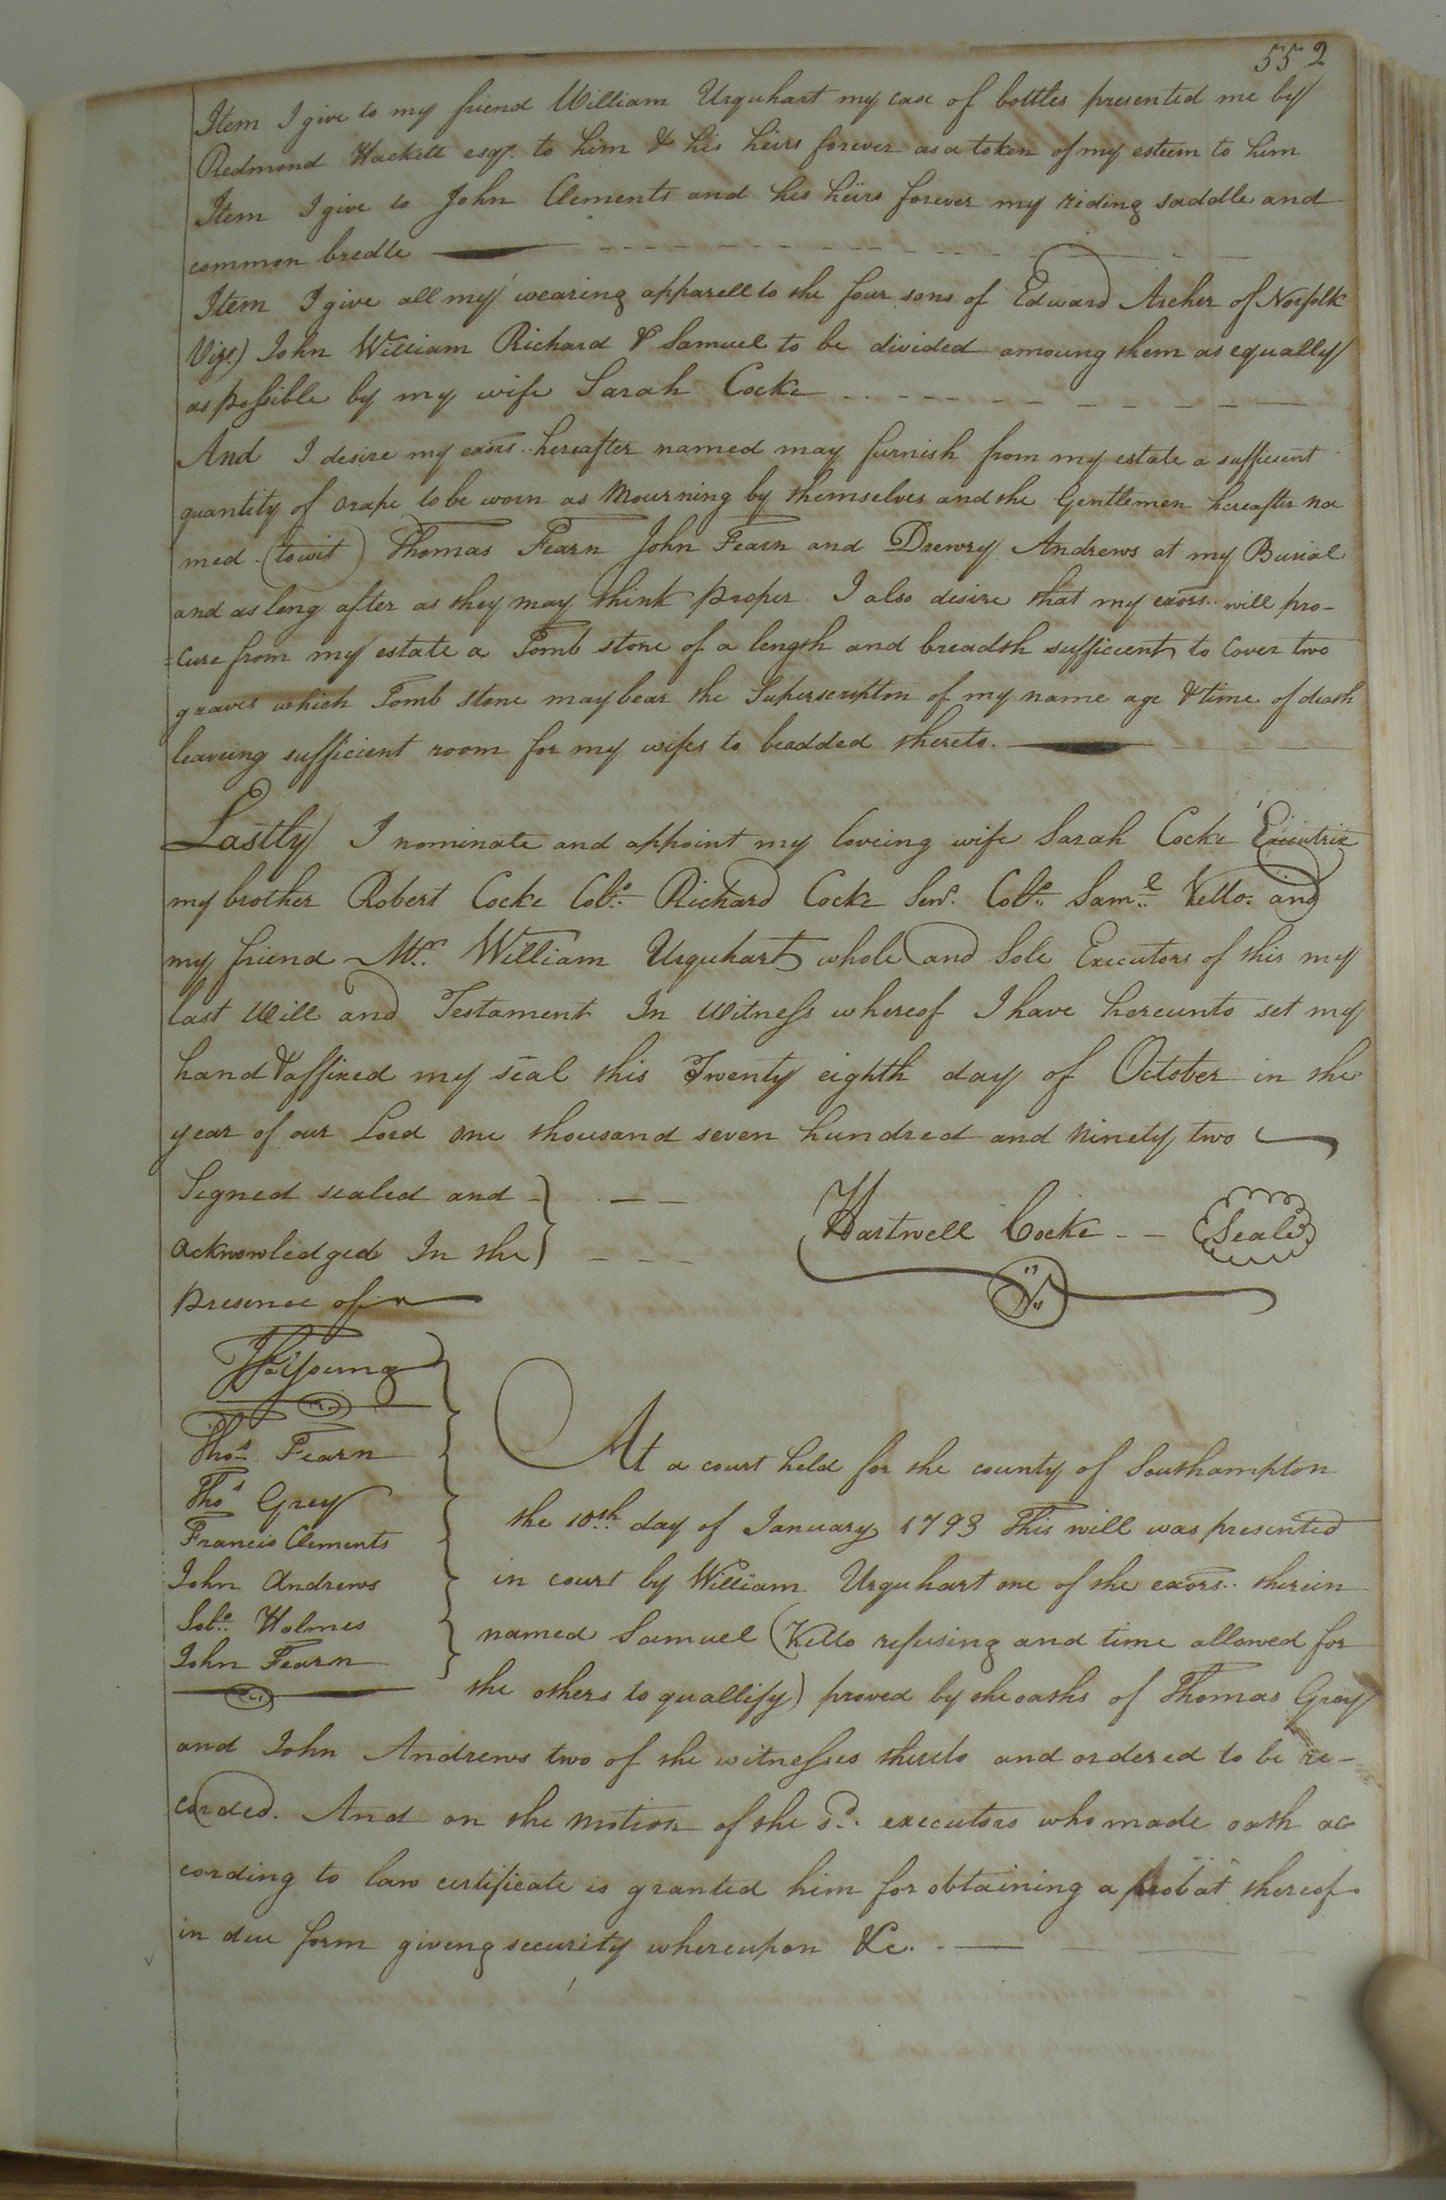 552
Item I give to my friend William Urquhart my case of bottles presented me by
Redmond Hackett esqr. to him & his heirs forever as a token of my esteem to him
Item I give to John Clements and his heirs forever my riding saddle and
common bredle
Item I give all my wearing apparell to the four sons of Edward Archer of Norfolk
Vizt.) John William Richard & Samuel to be divided amoung them as equally
as possible by my wife Sarah Cocke
And I desire my exors. hereafter named may furnish from my estate a sufficient
quantity of crape to be worn as Mourning by themselves and the Gentlemen hereafter na
med (towit) Thomas Fearn John Fearn and Drewry Andrews at my Burial
and as long after as they may think proper I also desire that my exors. will pro-
=cure from my estate a Tomb stone of a length and breadth sufficient to cover two
graves which Tomb stone may bear the Superscription of my name age & time of death
leaveing sufficient room for my wifes to beadded thereto.
Lastly I nominate and appoint my loveing wife Sarah Cocke Executrix
my brother Robert Cocke Colo. Richard Cocke Senr. Colo. Saml. Kello. and
my friend Mr. William Urquhart whole and Sole Executors of this my
last Will and Testament In Witness whereof I have hereunto set my
hand & affixed my seal this Twenty eighth day of October in the
year of our Lord one thousand seven hundred and ninety two
Signed sealed and
acknowledged In the
presence of
Hartwell Cocke -- Seale
Young
Thos. Fearn
Thos Grey
Francis Clements
John Andrews
Solo. Holmes
John Fearn
At a court held for the county of Southampton
the 10th. day of January 1793 This will was presented
in court by William Urquhart one of the exors. therein
named Samuel (Kello refusing and time allowed for
the others to quallify) proved by the oaths of Thomas Grey
and John Andrews two of the witnesses thereto and ordered to be re-
corded. And on the motion of the sd. executors who made oath ac
cording to law certificate is granted him for obtaining a probat thereof
in due form giveng security whereupon &c.